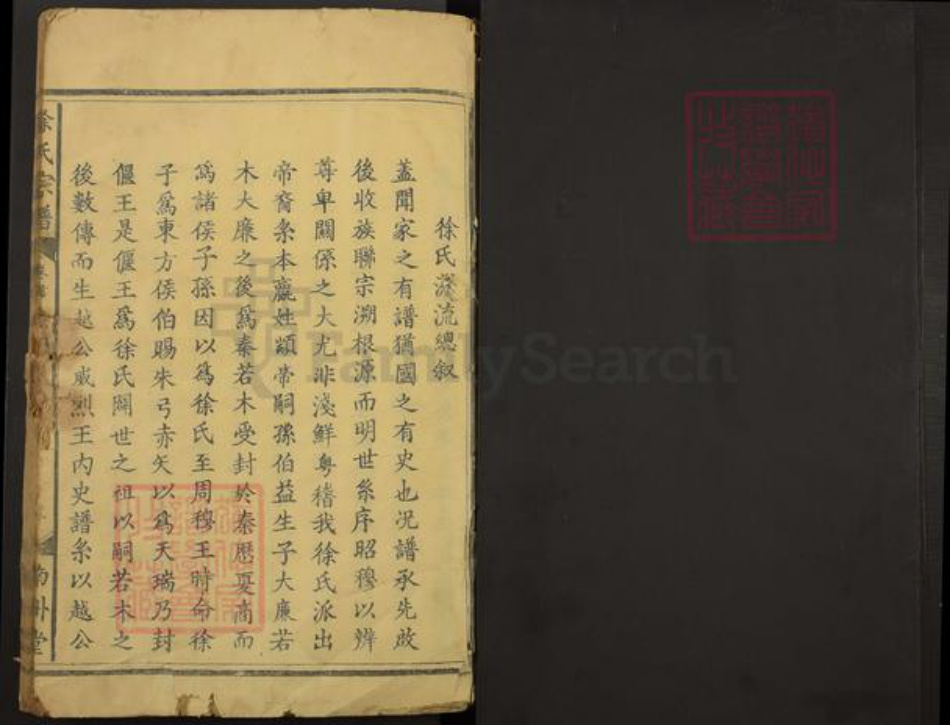 徐氏源流總叙
蓋聞家之有譜猶國之有史也況譜承先啟
後收族聯宗溯根源而明世系序昭穆以辨
尊卑關係之大尤非淺鮮粤稽我徐氏派出
帝裔系本嬴姓顓帝嗣孫伯益生子大廉若
木大廉之後爲秦若木受封於秦歷夏商而
爲諸侯子孫因以爲徐氏至周穆王時命徐
子爲東方侯伯賜朱弓赤矢以爲天瑞乃封
偃王是偃王爲徐氏開世之祖以嗣若木之
後數傳而生越公威烈王内史譜系以越公
徐氏宗譜
南州堂
FamilySearch